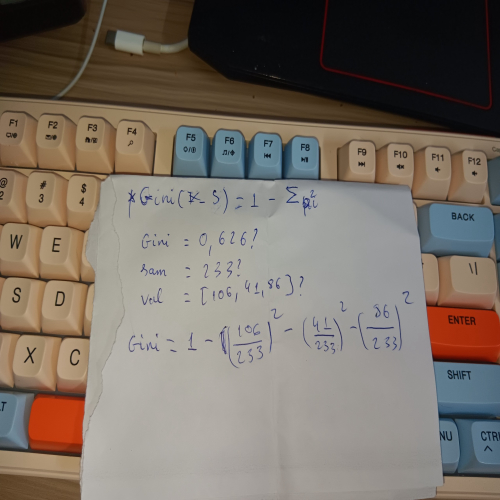 F1 F2 F3 F4 F5 F6 F7 F8 F9 F10 F11 F12
@ 2 # 3 $ 4
BACK
W E
S D
ENTER
X C
SHIFT
CTRL
Gini( S) = 1 - Σ pi²
Gini = 0,626?
sam = 233?
val = [106, 41, 86]?
Gini = 1 - (106/233)² - (41/233)² - (86/233)²